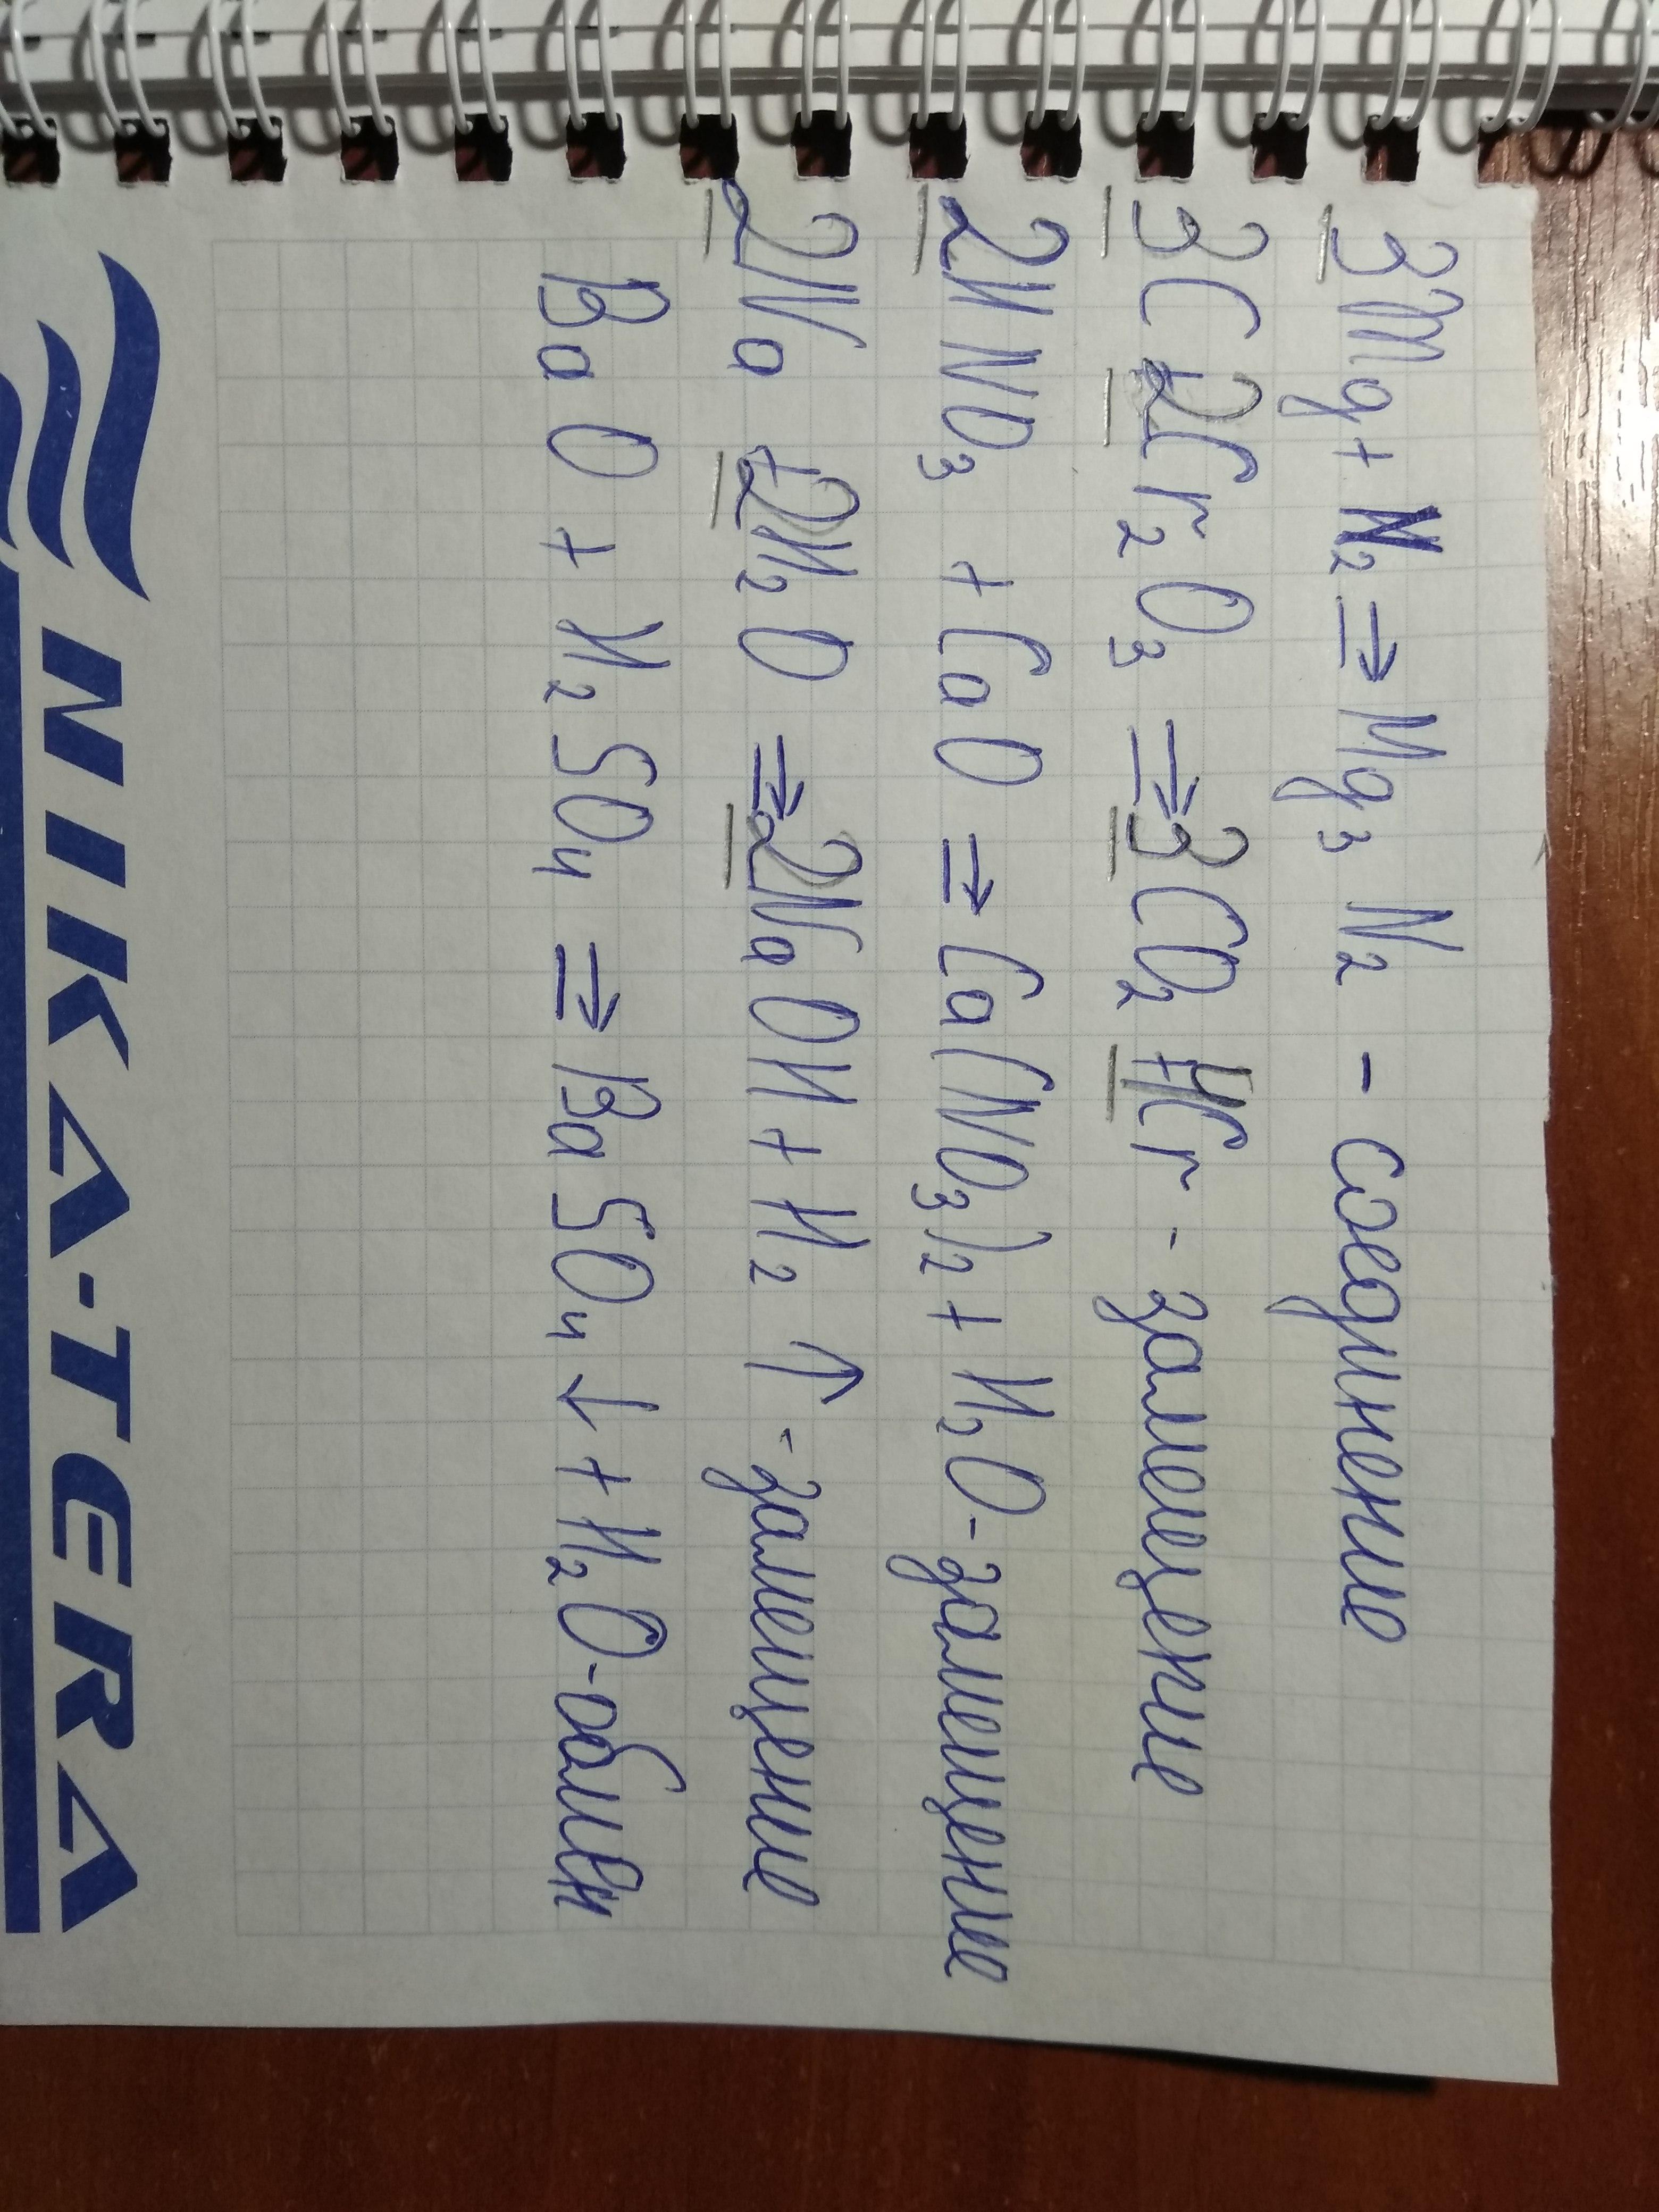 3Mg + N₂ ⇒ Mg₃N₂ - соединение
3C + 2Cr₂O₃ ⇒ 3CO₂ + 4Cr - замещение
2HNO₃ + CaO ⇒ Ca(NO₃)₂ + H₂O - замещение
2Na + 2H₂O ⇒ 2NaOH + H₂ ↑ - замещение
BaO + H₂SO₄ ⇒ BaSO₄ ↓ + H₂O - обмен
NIKA-TERA